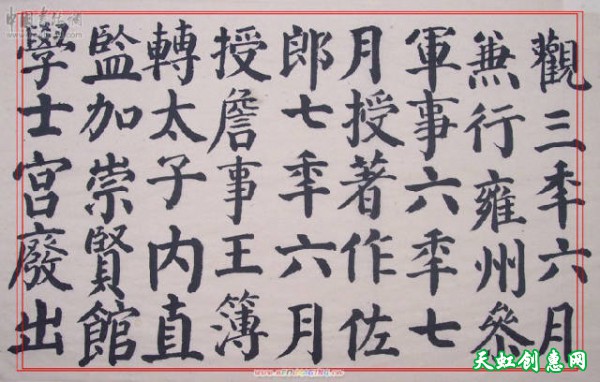 觀三年六月
兼行雍州參
軍事六年七
月授著作佐
郎七年六月
授詹事王簿
轉太子内直
監加崇賢館
學士宮廢出
天虹创意网